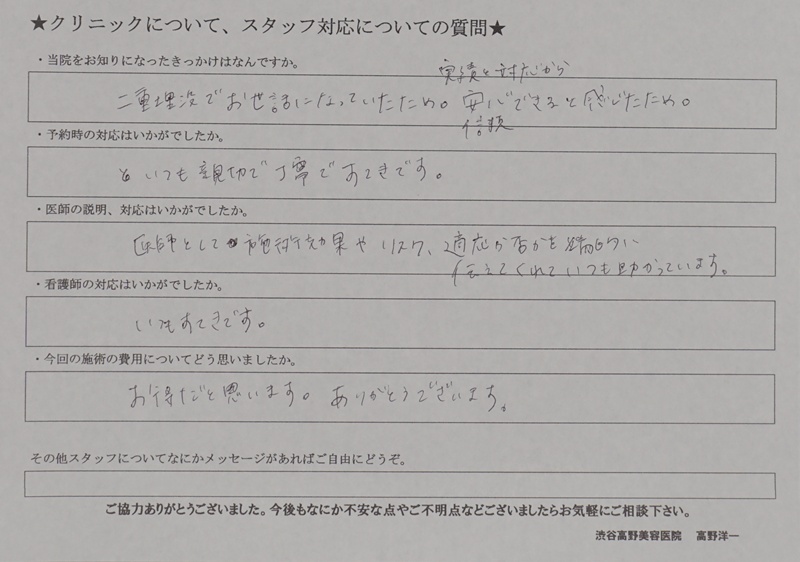 ★クリニックについて、スタッフ対応についての質問★
・当院をお知りになったきっかけはなんですか。
実績と対応から
二重埋没でお世話になっていたため。安心できると感じたため。
信頼
・予約時の対応はいかがでしたか。
いつも親切で丁寧ですてきです。
・医師の説明、対応はいかがでしたか。
医師として施術効果やリスク、適応か否かを端的に
伝えてくれていつも助かっています。
・看護師の対応はいかがでしたか。
いつもすてきです。
・今回の施術の費用についてどう思いましたか。
お得だと思います。ありがとうございます。
その他スタッフについてなにかメッセージがあればご自由にどうぞ。
ご協力ありがとうございました。今後もなにか不安な点やご不明点などございましたらお気軽にご相談下さい。
渋谷高野美容医院 高野洋一